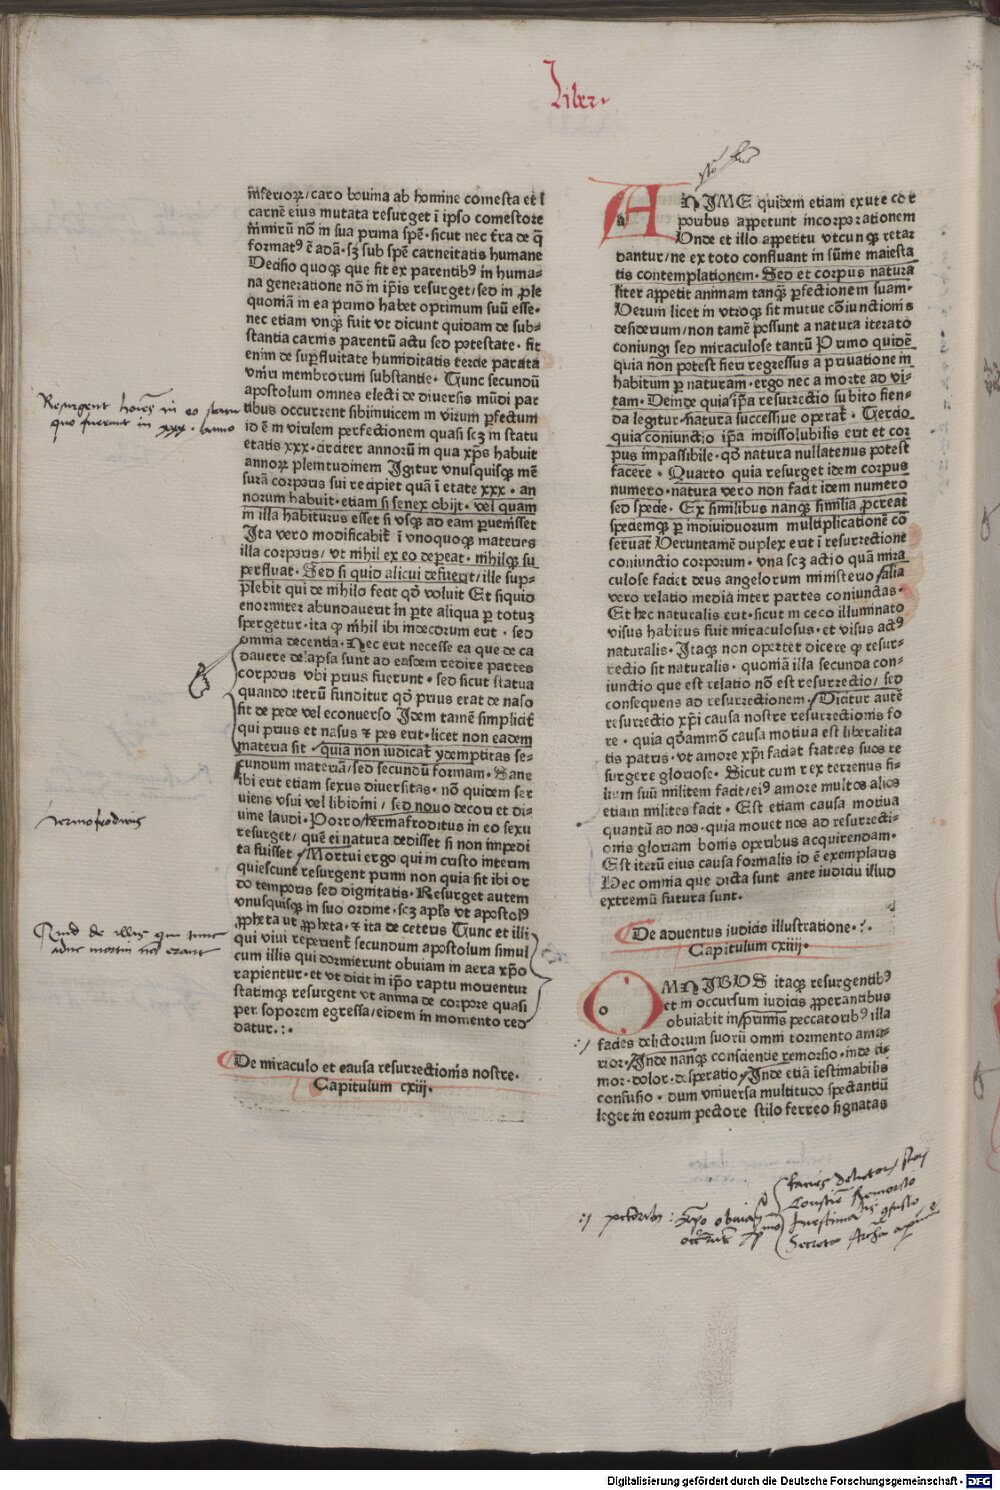 Liber
inferiorꝝ/caro bouina ab homine comesta et ĩ
carnẽ eius mutata resurget ĩ ipso comestore
nimirũ nõ in sua prima spẽ· sicut nec tra de q̃
formatꝰ ẽ adã· sꝫ sub spẽ carneitatis humane
Decisio quoqꝫ que fit ex parentibꝰ in huma-
na generatione nõ in ip̃is resurget/sed in ꝓle
quoniã in ea primo habet optimum suũ esse·
nec etiam vnqꝫ fuit vt dicunt quidam de sub-
stantia carnis parentũ actu sed potestate· fit
enim de suꝑfluitate humiditatis tercie parata
vniri membrorum substantie· Tunc secundũ
apostolum omnes electi de diuersis mũdi par
tibus occurrent sibiinuicem in virum ꝑfectum
id ẽ in virilem perfectionem quasi scꝫ in statu
etatis xxx·circiter annorũ in qua xp̃s habuit
annorꝝ plenitudinem Igitur vnusquisqꝫ mẽ
surã corporis sui recipiet quã ĩ etate xxx· an
norum habuit· etiam si senex obijt· vel quam
in illa habiturus esset si vsqꝫ ad eam ꝑuenisset
Ita vero modificabit̃ ĩ vnoquoqꝫ materies
illa corporis/ vt nihil ex eo depereat· nihilqꝫ su
perfluat· Sed si quid alicui defuerit/ille sup-
plebit qui de nihilo fecit qõ voluit Et siquid
enormiter abundauerit in ꝑte aliqua ꝑ totuꝫ
spergetur·ita ꝙ nihil ibi indecorum erit· sed
omnia decentia· Nec erit necesse ea que de ca
dauere delapsa sunt ad easdem redire partes
corporis vbi prius fuerunt· sed sicut statua
quando iterũ funditur qõ prius erat de naso
fit de pede vel econuerso Idem tamẽ simplicit̃
qui prius et nasus ⁊ pes erit·licet non eadem
materia sit· quia non iudicat̃ ydemptitas se-
cundum materiã/sed secundũ formam· Sane
ibi erit etiam sexus diuersitas· nõ quidem ser
uiens vsui vel libidini/ sed nouo decori et di-
uine laudi· Porro/hermafroditus in eo sexu
resurget/ quẽ ei natura dedisset si non impedi
ta fuisset Mortui ergo qui in cristo interim
quiescunt resurgent primi non quia sit ibi or
do temporis sed dignitatis· Resurget autem
vnusquisqꝫ in suo ordine· scꝫ apl̃s vt apostolꝰ
ꝓpheta ut ꝓpheta· ⁊ ita de ceteris Tunc et illi
qui viui reperient̃ secundum apostolum simul
cum illis qui dormierunt obuiam in aera xp̃o
rapientur· et vt dicit in ip̃o raptu morientur
statimqꝫ resurgent vt anima de corpore quasi
per soporem egressa/eidem in momento red
datur.:·
De miraculo et causa resurrectionis nostre·
Capitulum cxiij·
Resurgent hoĩes in eo statu
quo fuerunt in xxx· anno
hermofroditus
Quid de illis qui tunc
adhuc mortui non erant
a
ANIME quidem etiam exute cor
poribus appetunt incorporationem
Unde et illo appetitu vtcunqꝫ retar
dantur/ne ex toto confluant in sũme maiesta
tis contemplationem· Sed et corpus natura
liter appetit animam tanqꝫ ꝑfectionem suam·
Verum licet in vtroqꝫ sit mutue cõiunctionis
desiderium/non tamẽ possunt a natura iterato
coniungi sed miraculose tantũ Primo quidẽ
quia non potest fieri regressus a priuatione in
habitum ꝑ naturam· ergo nec a morte ad vi-
tam· Deinde quia ip̃a resurrectio subito fien-
da legitur· natura successiue operat̃· Tercio
quia coniunctio ip̃a indissolubilis erit et cor
pus impassibile· qõ natura nullatenus potest
facere· Quarto quia resurget idem corpus
numero·natura vero non facit idem numero
sed specie· Ex similibus nanqꝫ similia ꝓcreat
speciemqꝫ ꝑ indiuiduorum multiplicationẽ cõ
seruat Veruntamẽ duplex erit ĩ resurrectione
coniunctio corporum· vna scꝫ actio quã mira
culose faciet deus angelorum ministerio /alia
vero relatio media inter partes coniunctas·
Et hec naturalis erit·sicut in ceco illuminato
visus habitus fuit miraculosus·et visus actꝰ
naturalis· Itaqꝫ non oportet dicere ꝙ resur-
rectio sit naturalis· quoniã illa secunda con-
iunctio que est relatio nõ est resurrectio/ sed
consequens ad resurrectionem· Dicitur autẽ
resurrectio xp̃i causa nostre resurrectionis fo
re· quia qdãmõ causa motiua est liberalita
tis patris· vt amore xp̃i faciat fratres suos re
surgere gloriose· Sicut cum rex terrenus fi-
lium suũ militem facit/eiꝰ amore multos alios
etiam milites facit· Est etiam causa motiua
quantũ ad nos· quia mouet nos ad resurrecti-
onis gloriam bonis operibus acquirendam·
Est iterũ eius causa formalis id ẽ exemplaris
Hec omnia que dicta sunt ante iudiciũ illud
extremũ futura sunt·
De aduentus iudicis illustratione·:·
Capitulum cxiiij·
o
OMNIBVS itaqꝫ resurgentibꝰ
et in occursum iudicis ꝓperantibus
obuiabit in primis peccatoribꝰ illa
facies delictorum suorũ omni tormento ama-
rior· Inde nanqꝫ conscientie remorsio· inde ti-
mor·dolor·desperatio· Inde etiã ĩestimabilis
confusio· dum vniuersa multitudo spectantiũ
leget in eorum pectore stilo ferreo signatas